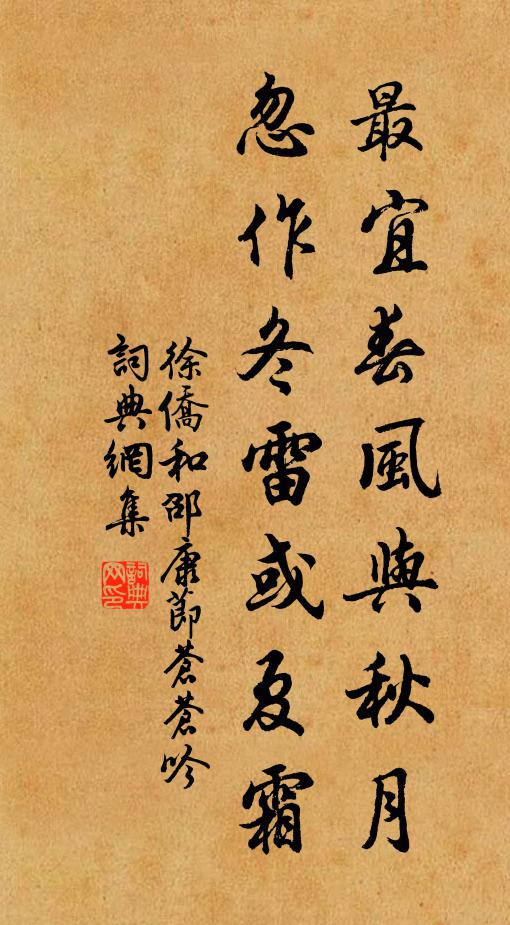 最宜春風與秋月
忽作冬雷或夏霜
徐僑和邵康節蒼蒼吟
詞典網集
詞典网印